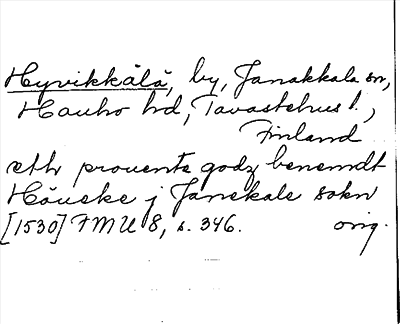 Hyvikkälä, by, Janakkala sn,
Hauho hd, Tavastehus l.,
Finland
eth prouente godz benemdt
Häueke j Janekale sokn
[1530] FMU 8, s. 346. orig.